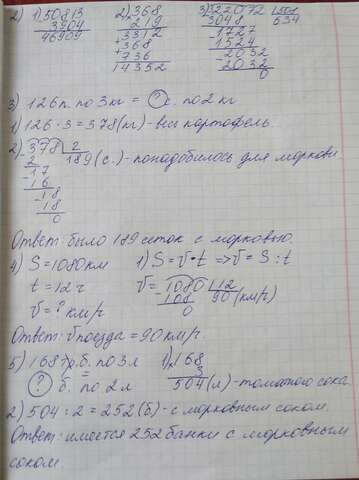 2) 1) 50813 2) 368 3) 322072 | 508
3904 219 3048 634
46909 3312 1727
368 1524
+ 736 - 2032
14352 - 2032
0
3) 126 п. по 3 кг = ? с. по 2 кг
1) 126 · 3 = 378 (кг) - весь картофель.
2) - 378 | 2
2 189 (с.) - понадобилось для моркови
17
16
- 18
18
0
Ответ: было 189 сеток с морковью.
4) S = 1080 км 1) S = v · t => v = S : t
t = 12 ч v = 1080 | 12
v = ? км/ч 108 90 (км/ч)
0
Ответ: v поезда = 90 км/ч
5) 168 б. по 3 л 1) × 168
? б. по 2 л 3
504 (л) - томатного сока
2) 504 : 2 = 252 (б) - с морковным соком.
Ответ: имеется 252 банки с морковным
соком.